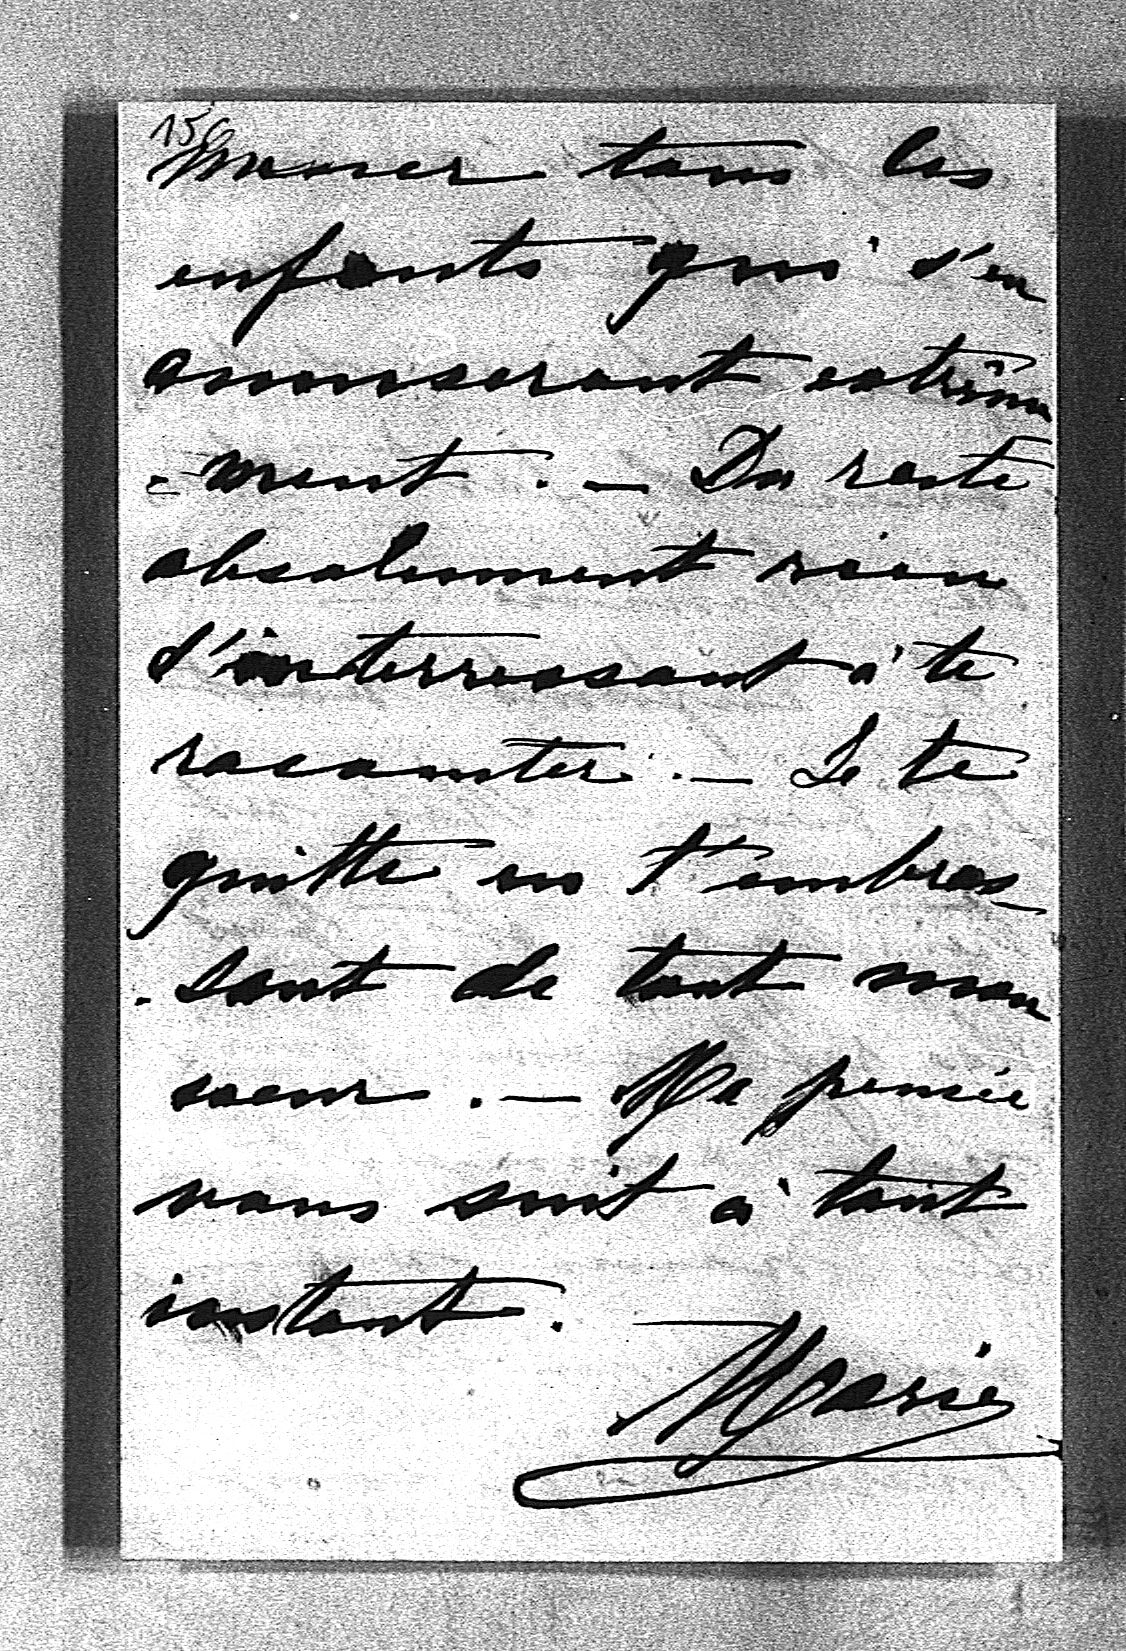 156
mener tous les
enfants qui s'en
amuseront extrême
-ment. — Du reste
absolument rien
d'interressant à te
raconter. — Je te
quitte en t'embras-
-sant de tout mon
coeur. — Ma pensée
vous suit à tout
instant. —
Marie